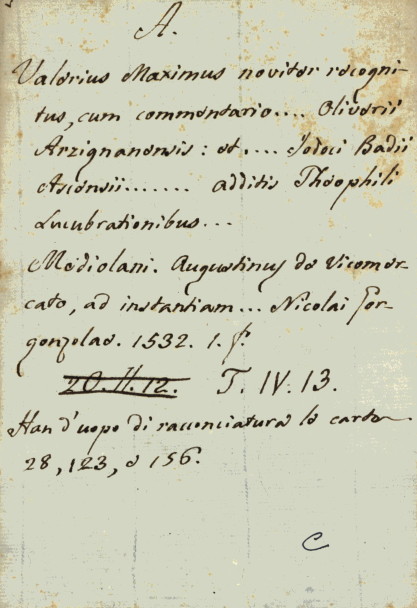 A.
Valerius Maximus noviter recogni-
tus, cum commentario.... Oliverii
Arzignanensis: et.... Jodoci Badii
Ascensii....... additis Theophili
Lucubrationibus...
Mediolani. Augustinus de Vicomer-
cato, ad instantiam... Nicolai Gor-
gonzolae. 1532. 1. f.
20. H. 12. T. IV. 13.
Han d'uopo di racconciatura le carte
28, 123, e 156.
C